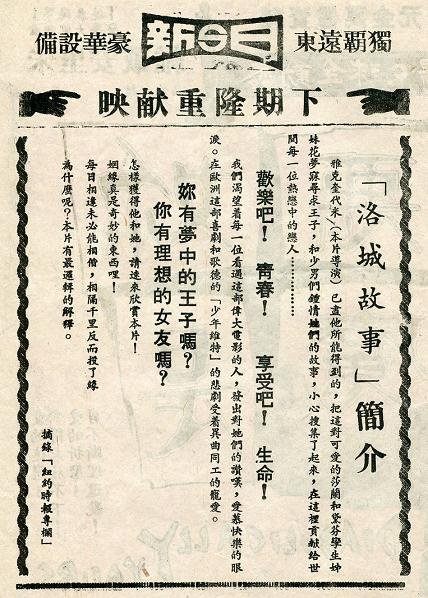 獨霸遠東 新今日 豪華設備
下期隆重献映
「洛城故事」簡介
雅克奎代米（本片導演）已盡他所能得到的，把這對可愛的莎蘭和黛芬學生姊
妹花夢寐尋求王子，和少男們鍾情她們的故事，小心搜集了起來，在這裡貢献給世
間每一位熱戀中的戀人………………
歡樂吧！ 靑春！ 享受吧！ 生命！
我們渴望着每一位看過這部偉大電影的人，發出對她們的讚嘆，愛慕快樂的眼
淚。在歐洲這部喜劇和歌德的「少年維特」的悲劇受着異曲同工的寵愛。
妳有夢中的王子嗎？
你有理想的女友嗎？
怎樣獲得他和她，請速來欣賞本片！
姻緣真是奇妙的東西哩！
每日相逢未必能相偕，相隔千里反而投了緣
為什麼呢？本片有最邏輯的解釋。
摘錄「紐約時報專欄」